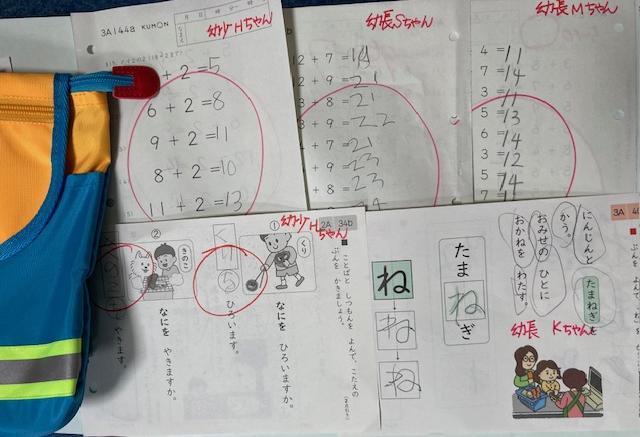 3A144a KUMON
幼少Hちゃん
+ 2 =5
6 + 2 =8
9 + 2 =11
8 + 2 =10
11 + 2 =13
幼長Sちゃん
12 + 7 =19
+ 9 =21
+ 8 =21
+ 9 =22
+ 7 =21
+ 9 =23
+ 8 =23
幼長Mちゃん
4 =11
7 =14
3 =11
5 =13
6 =14
3 =12
5 =14
幼少Hちゃん
2A 34b
■ ことばと いつもんを よんで、こたえの
ぶんを かきましょう。
①
くり
なにを ひろいますか。
くり を
ひろいます。
②
きのこ
なにを やきますか。
やきます。
3A
にんじんと たまねぎを
かう。
おみせの ひとに
おかねを わたす。
幼長 Kちゃん
たまねぎ
ね
ね
ね